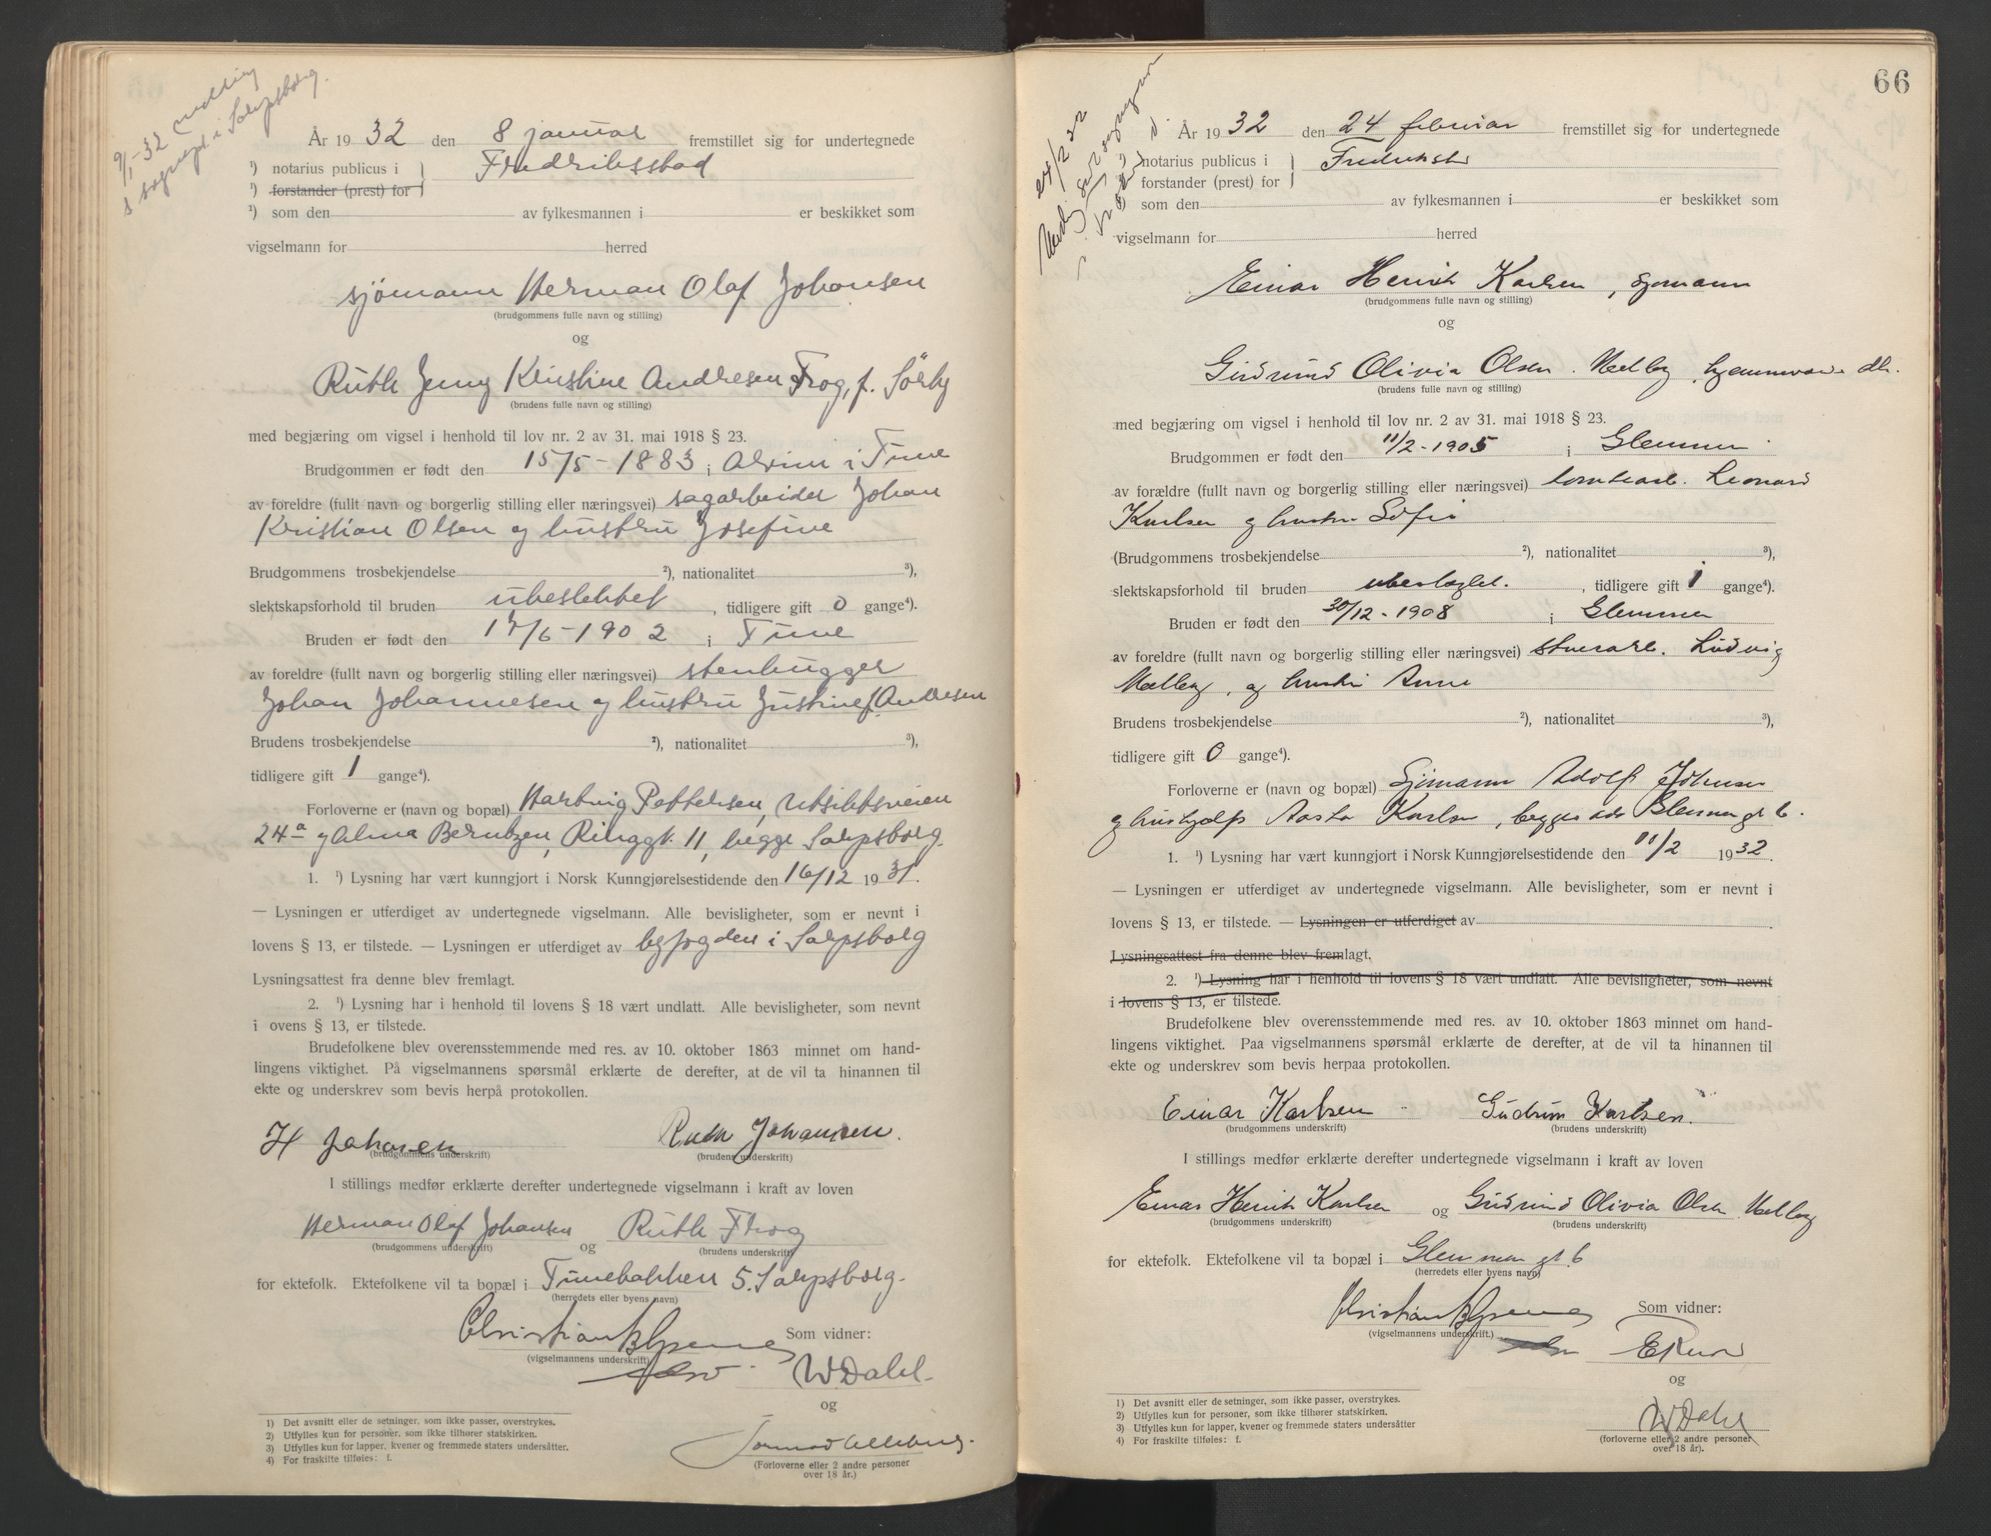 9/1-32 melding
s sogneprt. i Sarpsborg.
År 1932 den 8 januar fremstillet sig for undertegnede
¹) notarius publicus i Fredriksstad
¹) forstander (prest) for
¹) som den av fylkesmannen i er beskikket som
vigselmann for herred
sjømann Herman Olaf Johansen
(brudgommens fulle navn og stilling)
og
Ruth Jenny Kristine Andresen Frog, f. Sørby
(brudens fulle navn og stilling)
med begjæring om vigsel i henhold til lov nr. 2 av 31. mai 1918 § 23.
Brudgommen er født den 15/5-1883 i Alvim i Tune
av foreldre (fullt navn og borgerlig stilling eller næringsvei) sagarbeider Johan
Kristian Olsen og hustru Josefine
Brudgommens trosbekjendelse ²), nationalitet ³),
slektskapsforhold til bruden ubeslektet, tidligere gift 0 gange⁴).
Bruden er født den 17/6-1902 i Tune
av foreldre (fullt navn og borgerlig stilling eller næringsvei) stenhugger
Johan Johannesen og hustru Justine f. Andresen
Brudens trosbekjendelse ²), nationalitet ³),
tidligere gift 1 gange⁴).
Forloverne er (navn og bopæl) Hartvig Pettersen, Utsiktsveien
24a og Alma Berntzen, Ringgt. 11, begge Sarpsborg.
1. ¹) Lysning har vært kunngjort i Norsk Kunngjørelsestidende den 16/12 1931.
— Lysningen er utferdiget av undertegnede vigselmann. Alle bevisligheter, som er nevnt i
lovens § 13, er tilstede. — Lysningen er utferdiget av byfogden i Sarpsborg
Lysningsattest fra denne blev fremlagt.
2. ¹) Lysning har i henhold til lovens § 18 vært undlatt. Alle bevisligheter, som nevnt
i ovens § 13, er tilstede.
Brudefolkene blev overensstemmende med res. av 10. oktober 1863 minnet om hand-
lingens viktighet. På vigselmannens spørsmål erklærte de derefter, at de vil ta hinannen til
ekte og underskrev som bevis herpå protokollen.
H Johansen Ruth Johansen.
(brudgommens underskrift) (brudens underskrift)
I stillings medfør erklærte derefter undertegnede vigselmann i kraft av loven
Herman Olaf Johansen og Ruth Frog
(brudgommens underskrift) (brudens underskrift)
for ektefolk. Ektefolkene vil ta bopæl i Tunebakken 5. Sarpsborg.
(herredets eller byens navn)
Som vidner:
(vigselmannens underskrift)
W Dahl.
og
(Forloverne eller 2 andre personer
over 18 år.)
1) Det avsnitt eller de setninger, som ikke passer, overstrykes.
2) Utfylles kun for personer, som ikke tilhører statskirken.
3) Utfylles kun for lapper, kvener og fremmede staters undersåtter.
4) For fraskilte tilføies: f.
66
24/2 32
År 1932 den 24 februar fremstillet sig for undertegnede
¹) notarius publicus i Fredrikstad
forstander (prest) for
som den av fylkesmannen i er beskikket som
vigselmann for herred
Einar Henrik Karlsen, sjømann
(brudgommens fulle navn og stilling)
og
Gudrund Olivia Olsen Melby, hjemmevær. dtr.
(brudens fulle navn og stilling)
med begjæring om vigsel i henhold til lov nr. 2 av 31. mai 1918 § 23.
Brudgommen er født den 11/2-1905 i Glemmen
av forældre (fullt navn og borgerlig stilling eller næringsvei) tomtearb. Leonard
Karlsen og hustru Sofie
(Brudgommens trosbekjendelse ²), nationalitet ³),
slektskapsforhold til bruden ubeslegtet., tidligere gift 1 gange⁴).
Bruden er født den 30/12-1908 i Glemmen
av foreldre (fullt navn og borgerlig stilling eller næringsvei) stuerarb. Ludvig
Melby, og hustru Anne
Brudens trosbekjendelse ²), nationalitet ³),
tidligere gift 0 gange⁴).
Forloverne er (navn og bopæl) Sjømann Adolf Johnsen
og hushjelp Aasta Karlsen, begges adr Glemmengt 6.
1. ¹) Lysning har vært kunngjort i Norsk Kunngjørelsestidende den 11/2 1932.
— Lysningen er utferdiget av undertegnede vigselmann. Alle bevisligheter, som er nevnt i
lovens § 13, er tilstede. — Lysningen er utferdiget av
Lysningsattest fra denne blev fremlagt.
2. ¹) Lysning har i henhold til lovens § 18 vært undlatt. Alle bevisligheter, som nevnt
i lovens § 13, er tilstede.
Brudefolkene blev overensstemmende med res. av 10. oktober 1863 minnet om hand-
lingens viktighet. Paa vigselmannens spørsmål erklærte de derefter, at de vil ta hinannen til
ekte og underskrev som bevis herpaa protokollen.
Einar Karlsen Gudrun Karlsen.
(brudgommens underskrift) (brudens underskrift)
I stillings medfør erklærte derefter undertegnede vigselmann i kraft av loven
Einar Henrik Karlsen og Gudrund Olivia Olsen Melby
(brudgommens underskrift) (brudens underskrift)
for ektefolk. Ektefolkene vil ta bopæl i Glemmengt. 6
(herredets eller byens navn)
Som vidner:
(vigselmannens underskrift.)
og
W Dahl
(forloverne eller 2 andre personer
over 18 år).
1) Det avsnitt eller de setninger, som ikke passer, overstrykes.
2) Utfylles kun for personer, som ikke tilhører statskirken.
3) Utfylles kun for lapper, kvener og fremmede staters undersåtter
4) For fraskilte tilføies: f.